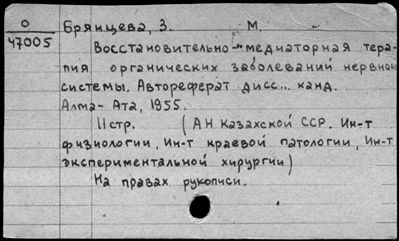 О
47005
Брянцева, З. М.
Восстановительно-медиаторная тера-
пия органических заболеваний нервной
системы. Автореферат дисс... канд.
Алма-Ата, 1955.
11стр. (АН Казахской ССР. Ин-т
физиологии, Ин-т краевой патологии, Ин-т
экспериментальной хирургии)
На правах рукописи.